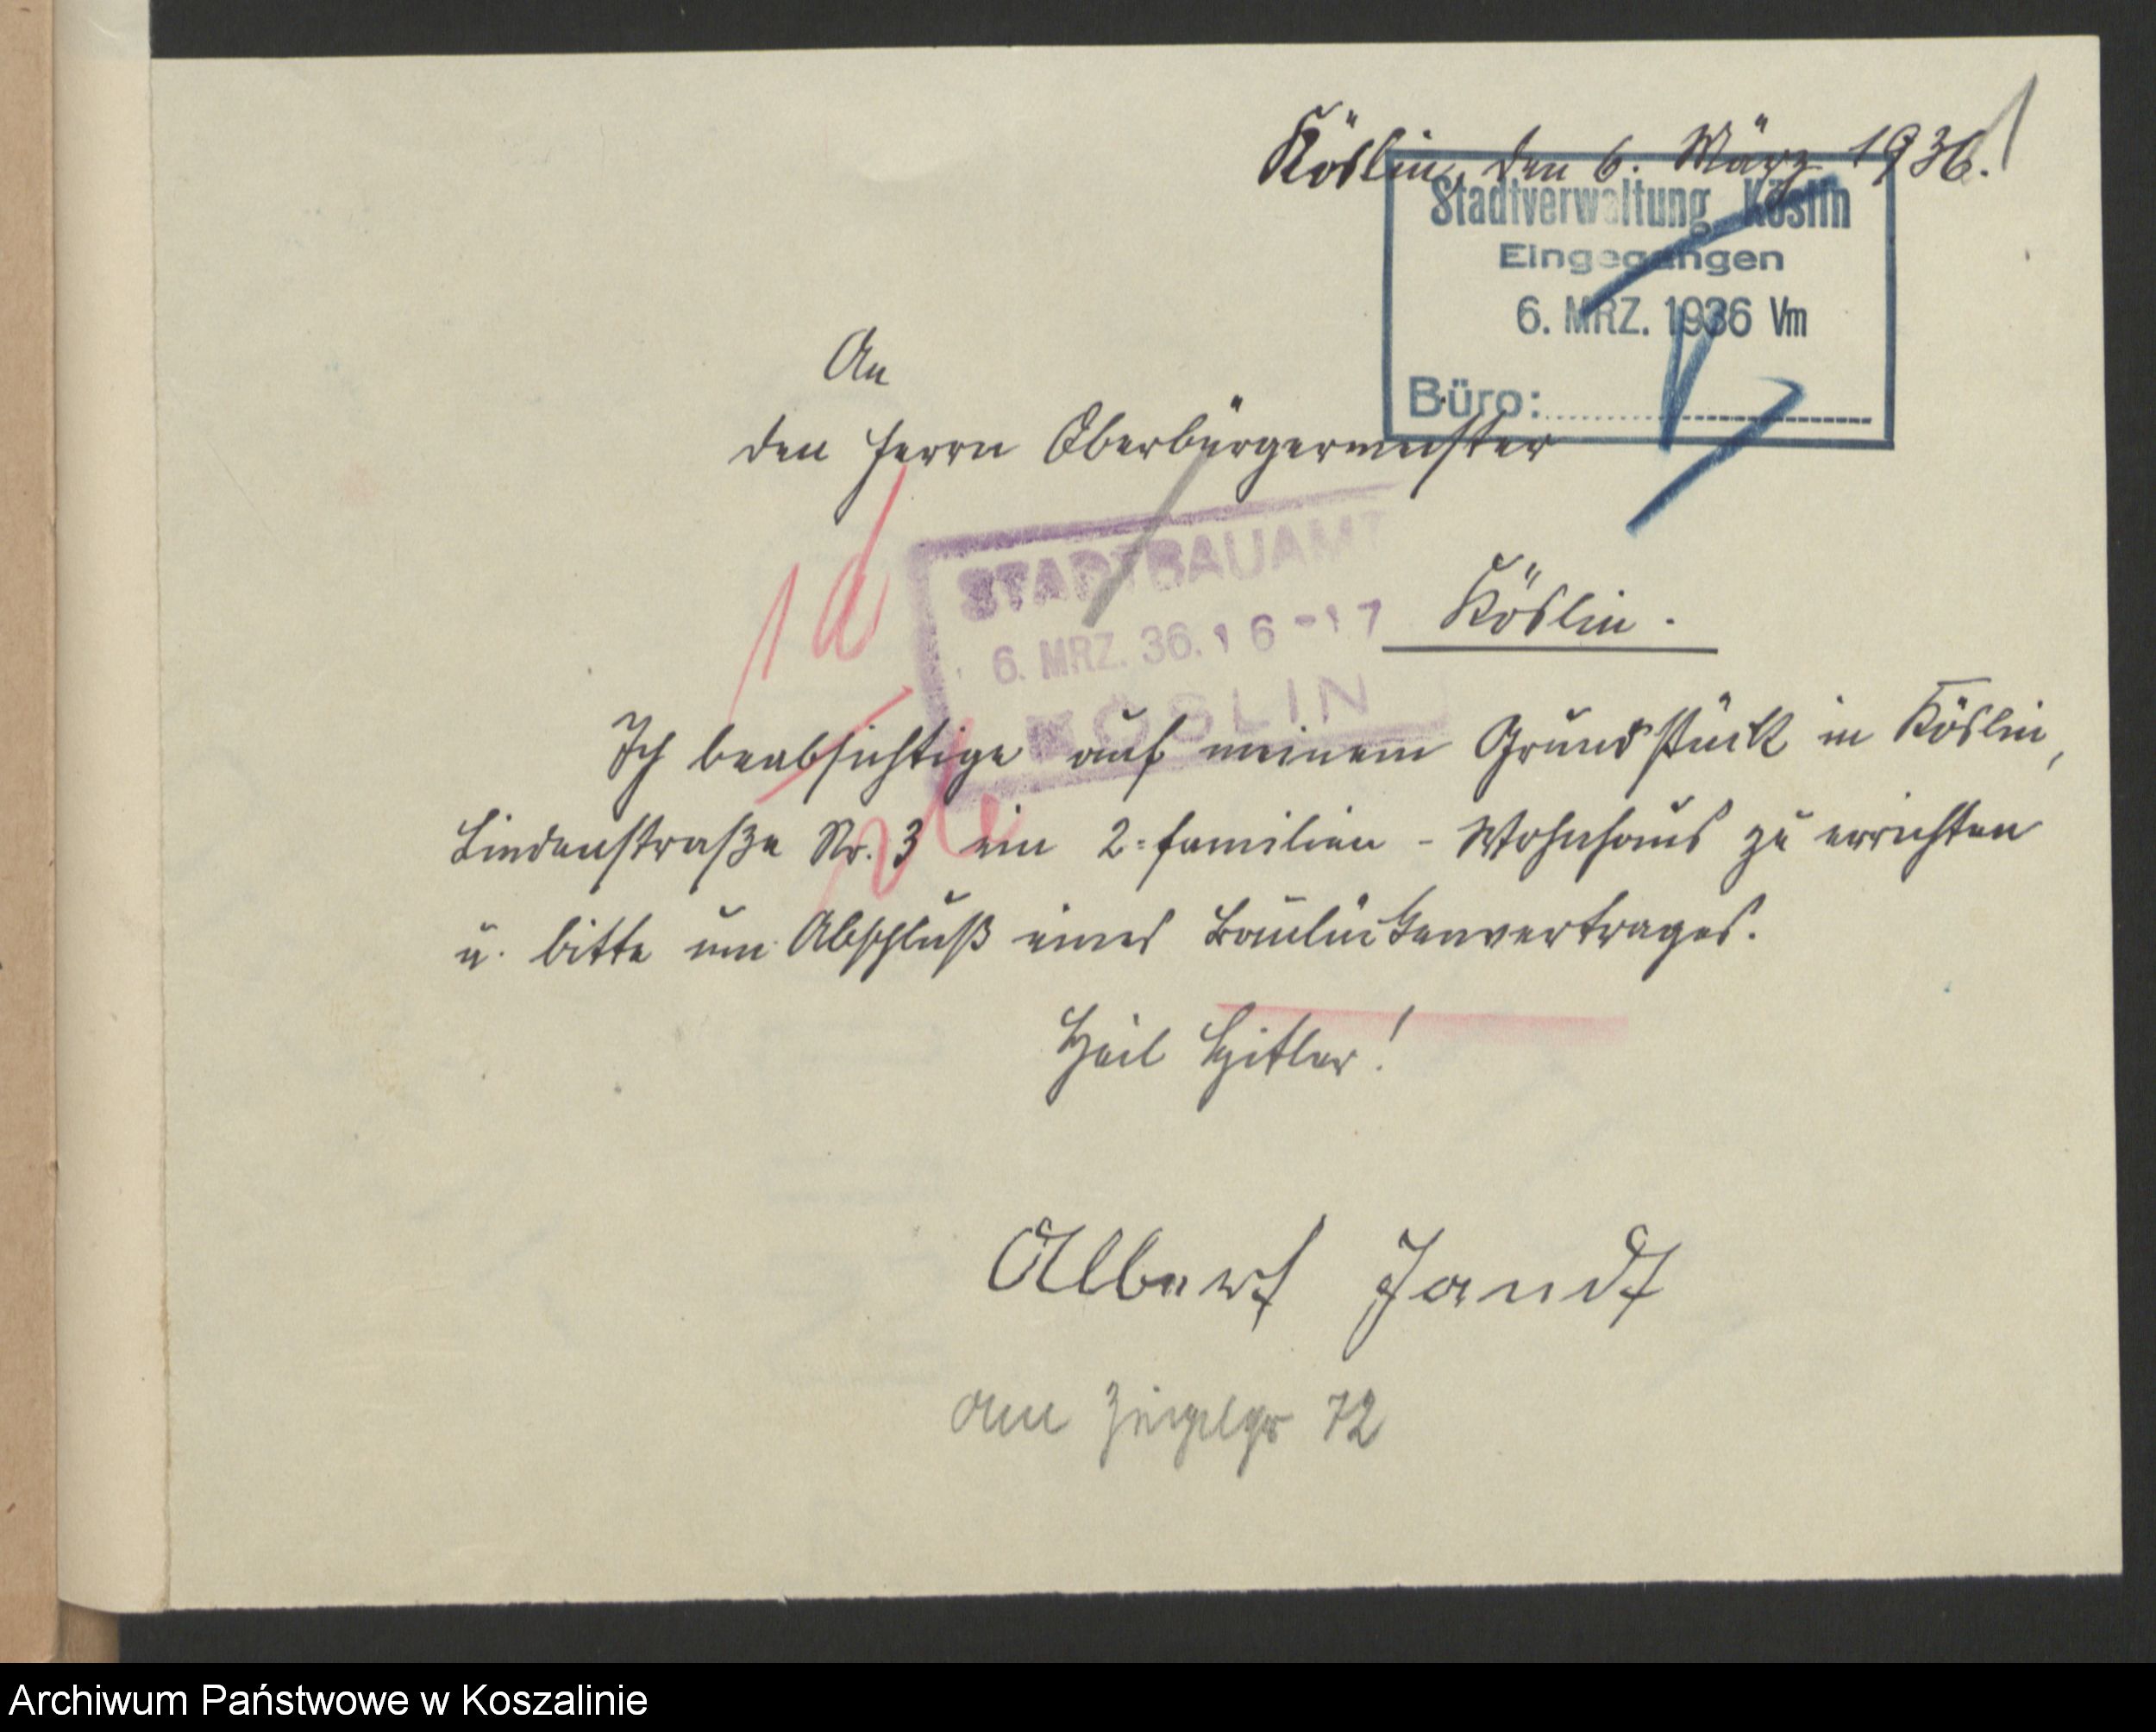 Köslin, den 6. März 1936.
Stadtverwaltung Köslin
Eingegangen
6. MRZ. 1936 Vm
Büro:
An
den Herrn Oberbürgermeister
STADTBAUAMT
6. MRZ. 36. 16-17
KÖSLIN
Köslin.
Ich beabsichtige auf meinem Grundstück in Köslin,
Lindenstraße Nr. 3 ein 2=familien-Wohnhaus zu errichten
u. bitte um Abschluß eines Baulückenvertrages.
Heil Hitler!
Albert Jandt
72
Archiwum Państwowe w Koszalinie